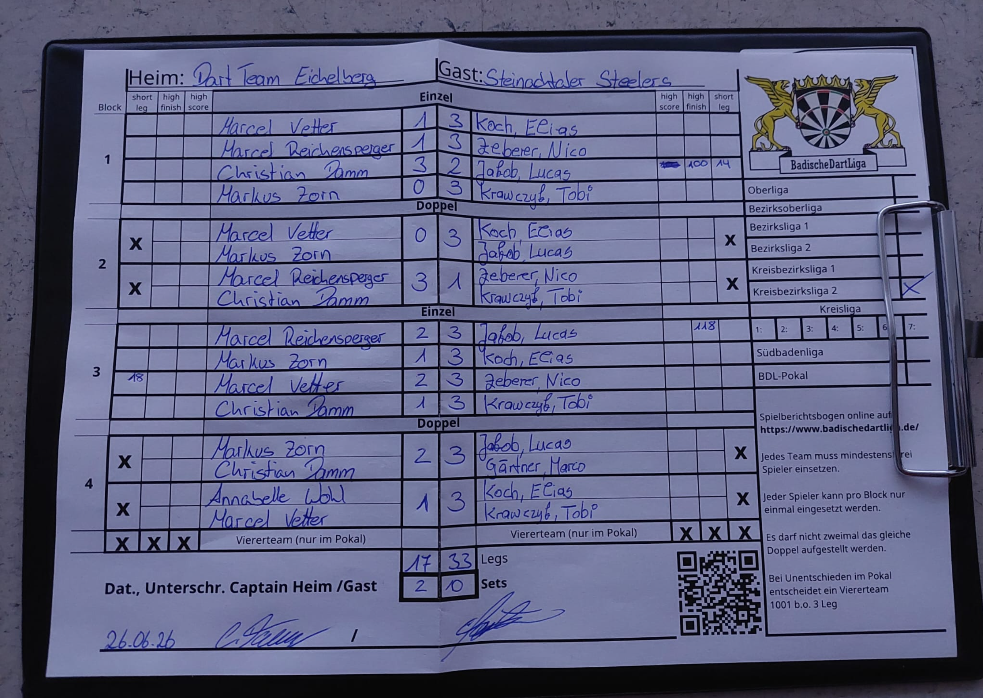 Heim: Dart Team Eichelberg Gast: Steinachtaler Steelers
Block short leg high finish high score Einzel high score high finish short leg
1
Marcel Vetter 1 3 Koch, Elias
Marcel Reichensperger 1 3 Zeberer, Nico
Christian Damm 3 2 Jakob, Lucas 100 14
Markus Zorn 0 3 Krawczyk, Tobi
Doppel
2
X Marcel Vetter 0 3 Koch, Elias X
Markus Zorn Jakob, Lucas
X Marcel Reichensperger 3 1 Zeberer, Nico X
Christian Damm Krawczyk, Tobi
Einzel
3
Marcel Reichensperger 2 3 Jakob, Lucas 118
Markus Zorn 1 3 Koch, Elias
18 Marcel Vetter 2 3 Zeberer, Nico
Christian Damm 1 3 Krawczyk, Tobi
Doppel
4
X Markus Zorn 2 3 Jakob, Lucas X
Christian Damm Gärtner, Marco
X Annabelle Wohl 1 3 Koch, Elias X
Marcel Vetter Krawczyk, Tobi
X X X Viererteam (nur im Pokal) Viererteam (nur im Pokal) X X X
17 33 Legs
Dat., Unterschr. Captain Heim /Gast 2 10 Sets
26.06.26 /
BadischeDartLiga
Oberliga
Bezirksoberliga
Bezirksliga 1
Bezirksliga 2
Kreisbezirksliga 1
Kreisbezirksliga 2 X
Kreisliga
1: 2: 3: 4: 5: 6 7:
Südbadenliga
BDL-Pokal
Spielberichtsbogen online auf
https://www.badischedartliga.de/
Jedes Team muss mindestens drei
Spieler einsetzen.
Jeder Spieler kann pro Block nur
einmal eingesetzt werden.
Es darf nicht zweimal das gleiche
Doppel aufgestellt werden.
Bei Unentschieden im Pokal
entscheidet ein Viererteam
1001 b.o. 3 Leg